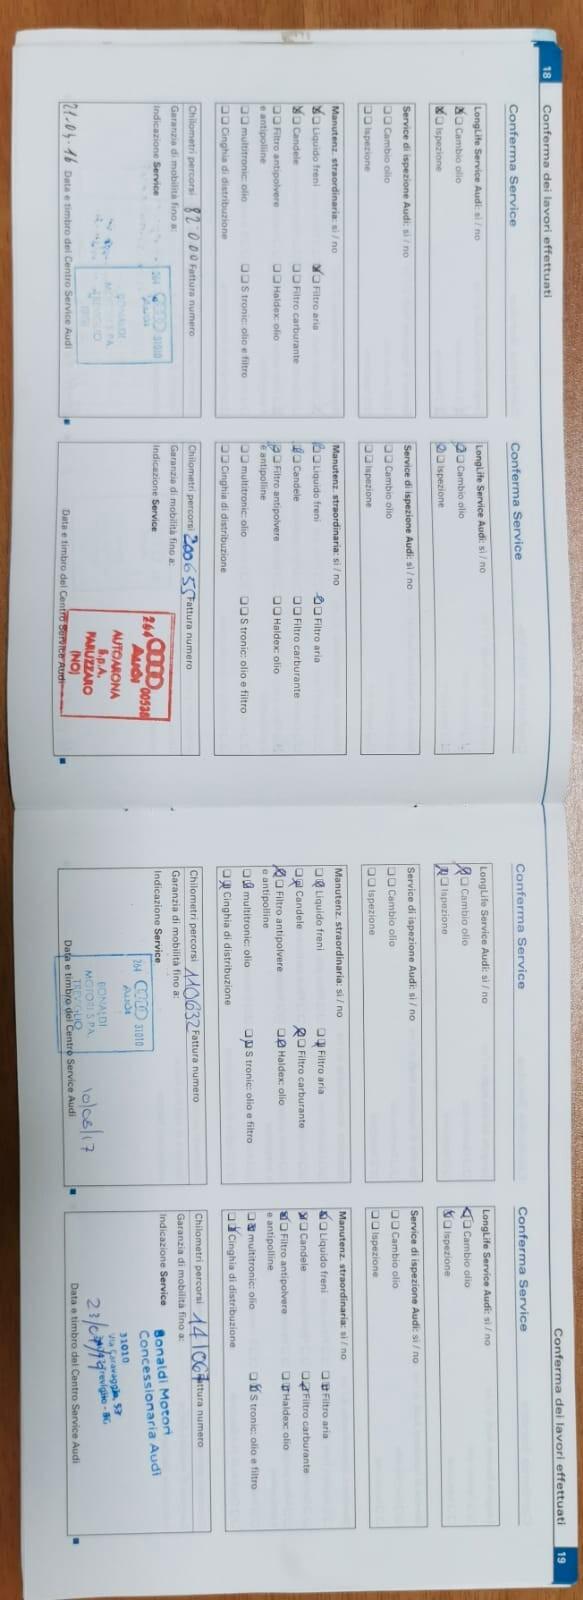 18 Conferma dei lavori effettuati
Conferma Service
LongLife Service Audi: sì / no
Cambio olio
Ispezione
Service di ispezione Audi: sì / no
Cambio olio
Ispezione
Manutenz. straordinaria: sì / no
Liquido freni Filtro aria
Candele Filtro carburante
Filtro antipolvere Haldex: olio
e antipolline
multitronic: olio S tronic: olio e filtro
Cinghia di distribuzione
Chilometri percorsi 82.000 Fattura numero
Garanzia di mobilità fino a:
Indicazione Service
264 31010
Audi
BONALDI
TREVIGLIO
21.04.16 Data e timbro del Centro Service Audi
Conferma Service
LongLife Service Audi: sì / no
Cambio olio
Ispezione
Service di ispezione Audi: sì / no
Cambio olio
Ispezione
Manutenz. straordinaria: sì / no
Liquido freni Filtro aria
Candele Filtro carburante
Filtro antipolvere Haldex: olio
e antipolline
multitronic: olio S tronic: olio e filtro
Cinghia di distribuzione
Chilometri percorsi 200655 Fattura numero
Garanzia di mobilità fino a:
Indicazione Service
264 00538
Audi
AUTOARONA
S.p.A.
PARUZZARO
(NO)
Data e timbro del Centro Service Audi
Conferma dei lavori effettuati 19
Conferma Service
LongLife Service Audi: sì / no
Cambio olio
Ispezione
Service di ispezione Audi: sì / no
Cambio olio
Ispezione
Manutenz. straordinaria: sì / no
Liquido freni Filtro aria
Candele Filtro carburante
Filtro antipolvere Haldex: olio
e antipolline
multitronic: olio S tronic: olio e filtro
Cinghia di distribuzione
Chilometri percorsi 110632 Fattura numero
Garanzia di mobilità fino a:
Indicazione Service
264 31010
Audi
BONALDI
MOTORI S.P.A.
TREVIGLIO
10/08/17
Data e timbro del Centro Service Audi
Conferma Service
LongLife Service Audi: sì / no
Cambio olio
Ispezione
Service di ispezione Audi: sì / no
Cambio olio
Ispezione
Manutenz. straordinaria: sì / no
Liquido freni Filtro aria
Candele Filtro carburante
Filtro antipolvere Haldex: olio
e antipolline
multitronic: olio S tronic: olio e filtro
Cinghia di distribuzione
Chilometri percorsi 141067 Fattura numero
Garanzia di mobilità fino a:
Indicazione Service
Bonaldi Motori
Concessionaria Audi
31010
Via Caravaggio, 57
Treviglio - BG
23/07/19
Data e timbro del Centro Service Audi